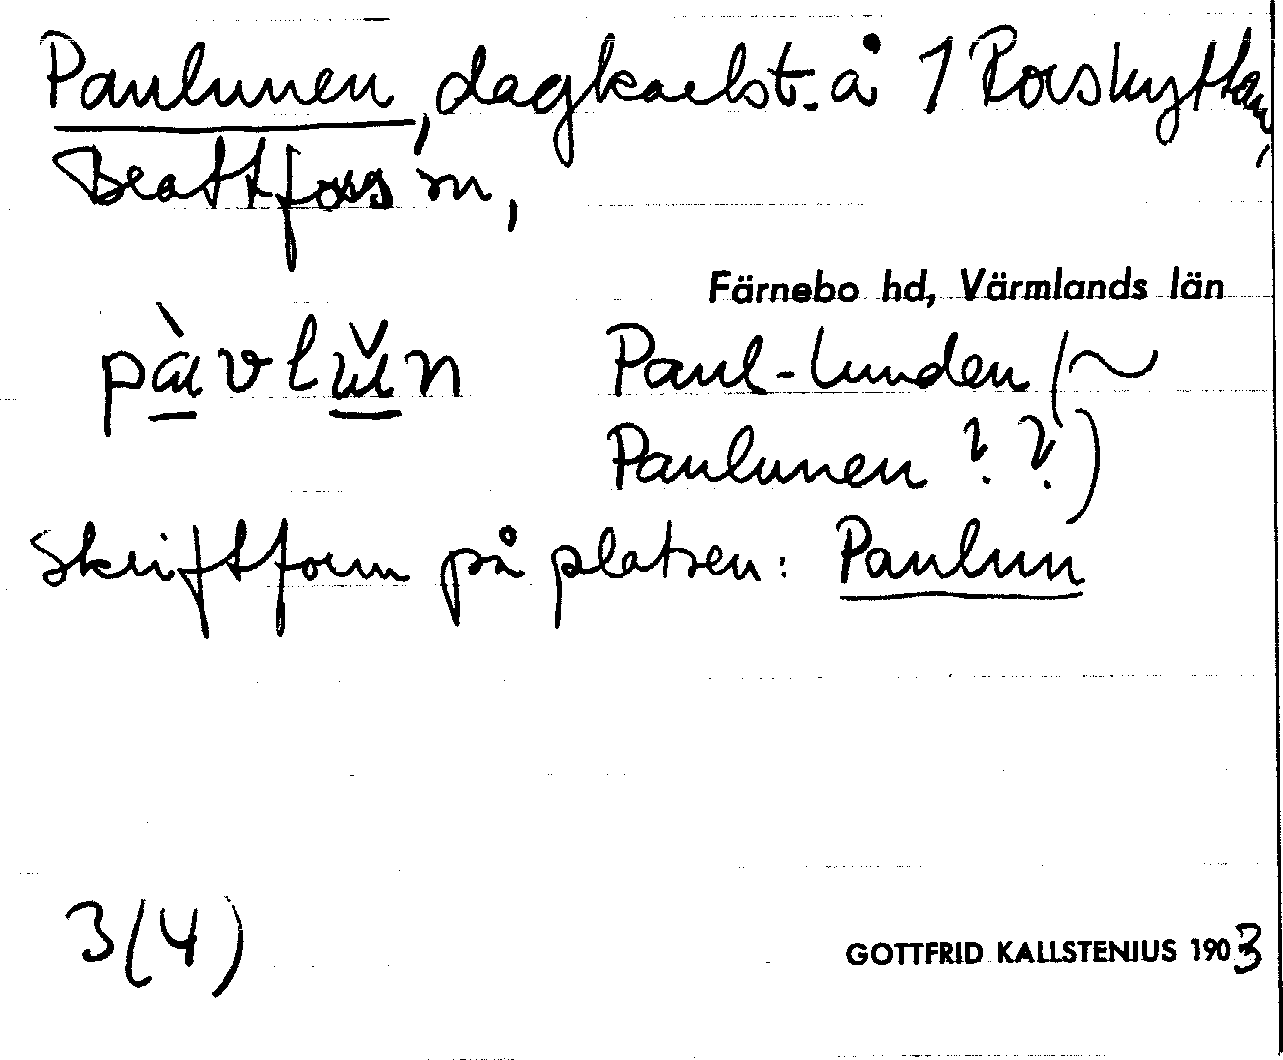 Paulunen, dagkarlst. å 1 Porskyttan,
Brattfors sn,
Färnebo hd, Värmlands län
pàvlŭn Paul-lunden (~
Paulunen ? ?)
Skriftform på platsen: Paulun
3(4)
GOTTFRID KALLSTENIUS 1903